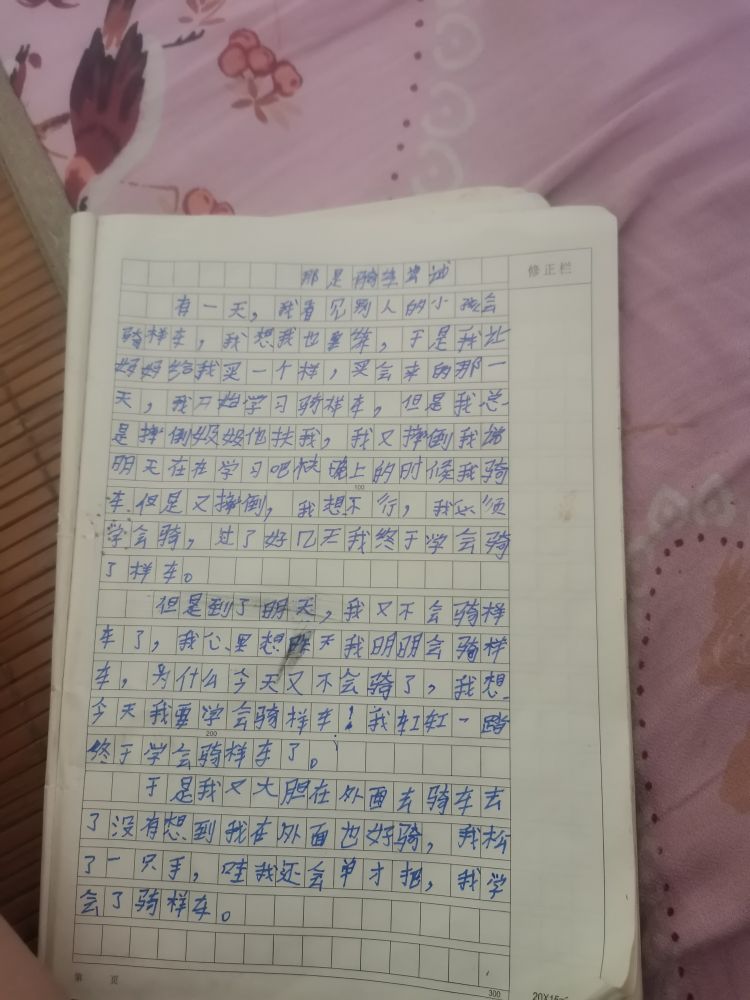 那是骑车
修正栏
有一天，我看见别人的小孩会
骑样车，我想我也要练，于是我让
妈妈给我买一个样，买会来的那一
天，我开始学习骑样车，但是我总
是摔倒级级他扶我，我又摔倒我
明天在在学习吧快晚上的时候我骑
100
车但是又摔倒，我想不行，我必须
学会骑，过了好几天我终于学会骑
了样车。
但是到了明天，我又不会骑样
车了，我心里想昨天我明明会骑样
车，为什么今天又不会骑了，我想
今天我要学会骑样车！我车工车工一踏
200
终于学会骑样车了。
于是我又大胆在外面去骑车去
了没有想到我在外面也好骑，我松
了一只手，哇我还会单才把，我学
会了骑样车。
第 页
300